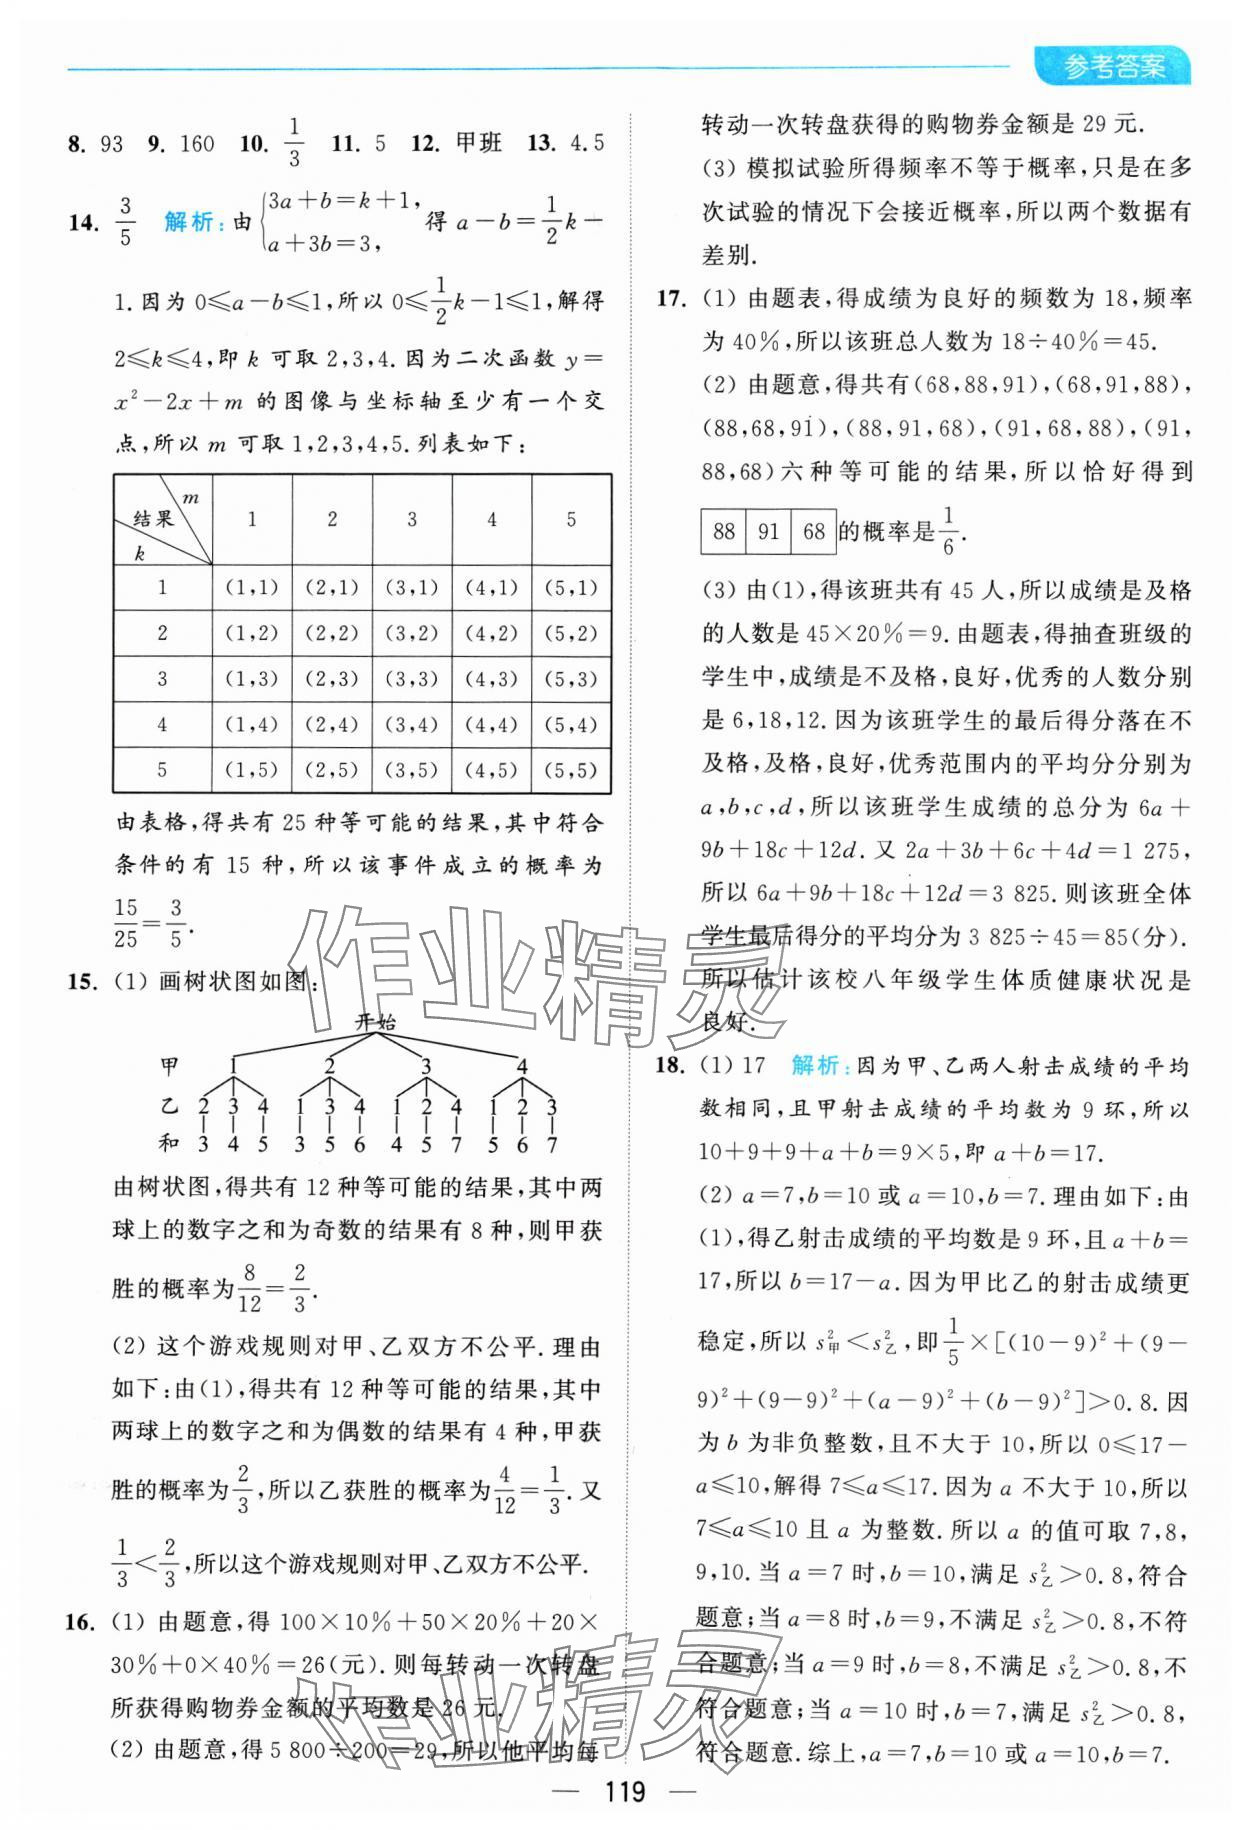 参考答案
8. 93　9. 160　10. 1/3　11. 5　12. 甲班　13. 4.5
14. 3/5　解析:由{3a+b=k+1, a+3b=3, 得 a-b=1/2k-
1.因为 0≤a-b≤1,所以 0≤1/2k-1≤1,解得
2≤k≤4,即 k 可取 2,3,4.因为二次函数 y=
x²-2x+m 的图像与坐标轴至少有一个交
点,所以 m 可取 1,2,3,4,5.列表如下:
结果 m k　1　2　3　4　5
1　(1,1)　(2,1)　(3,1)　(4,1)　(5,1)
2　(1,2)　(2,2)　(3,2)　(4,2)　(5,2)
3　(1,3)　(2,3)　(3,3)　(4,3)　(5,3)
4　(1,4)　(2,4)　(3,4)　(4,4)　(5,4)
5　(1,5)　(2,5)　(3,5)　(4,5)　(5,5)
由表格,得共有 25 种等可能的结果,其中符合
条件的有 15 种,所以该事件成立的概率为
15/25=3/5.
15. (1) 画树状图如图:
开始
甲　1　2　3　4
乙　2　3　4　1　3　4　1　2　4　1　2　3
和　3　4　5　3　5　6　4　5　7　5　6　7
由树状图,得共有 12 种等可能的结果,其中两
球上的数字之和为奇数的结果有 8 种,则甲获
胜的概率为8/12=2/3.
(2) 这个游戏规则对甲、乙双方不公平.理由
如下:由(1),得共有 12 种等可能的结果,其中
两球上的数字之和为偶数的结果有 4 种,甲获
胜的概率为2/3,所以乙获胜的概率为4/12=1/3.又
1/3<2/3,所以这个游戏规则对甲、乙双方不公平.
16. (1) 由题意,得 100×10%+50×20%+20×
30%+0×40%=26(元).则每转动一次转盘
所获得购物券金额的平均数是 26 元.
(2) 由题意,得 5 800÷200=29,所以他平均每
转动一次转盘获得的购物券金额是 29 元.
(3) 模拟试验所得频率不等于概率,只是在多
次试验的情况下会接近概率,所以两个数据有
差别.
17. (1) 由题表,得成绩为良好的频数为 18,频率
为 40%,所以该班总人数为 18÷40%=45.
(2) 由题意,得共有(68,88,91),(68,91,88),
(88,68,91),(88,91,68),(91,68,88),(91,
88,68)六种等可能的结果,所以恰好得到
88 91 68 的概率是1/6.
(3) 由(1),得该班共有 45 人,所以成绩是及格
的人数是 45×20%=9.由题表,得抽查班级的
学生中,成绩是不及格,良好,优秀的人数分别
是 6,18,12.因为该班学生的最后得分落在不
及格,及格,良好,优秀范围内的平均分分别为
a,b,c,d,所以该班学生成绩的总分为 6a+
9b+18c+12d.又 2a+3b+6c+4d=1 275,
所以 6a+9b+18c+12d=3 825.则该班全体
学生最后得分的平均分为 3 825÷45=85(分).
所以估计该校八年级学生体质健康状况是
良好.
18. (1) 17　解析:因为甲、乙两人射击成绩的平均
数相同,且甲射击成绩的平均数为 9 环,所以
10+9+9+a+b=9×5,即 a+b=17.
(2) a=7,b=10 或 a=10,b=7.理由如下:由
(1),得乙射击成绩的平均数是 9 环,且 a+b=
17,所以 b=17-a.因为甲比乙的射击成绩更
稳定,所以 s²甲<s²乙,即1/5×[(10-9)²+(9-
9)²+(9-9)²+(a-9)²+(b-9)²]>0.8.因
为 b 为非负整数,且不大于 10,所以 0≤17-
a≤10,解得 7≤a≤17.因为 a 不大于 10,所以
7≤a≤10 且 a 为整数.所以 a 的值可取 7,8,
9,10.当 a=7 时,b=10,满足 s²乙>0.8,符合
题意;当 a=8 时,b=9,不满足 s²乙>0.8,不符
合题意;当 a=9 时,b=8,不满足 s²乙>0.8,不
符合题意;当 a=10 时,b=7,满足 s²乙>0.8,
符合题意.综上,a=7,b=10 或 a=10,b=7.
作业精灵
作业精灵
— 119 —